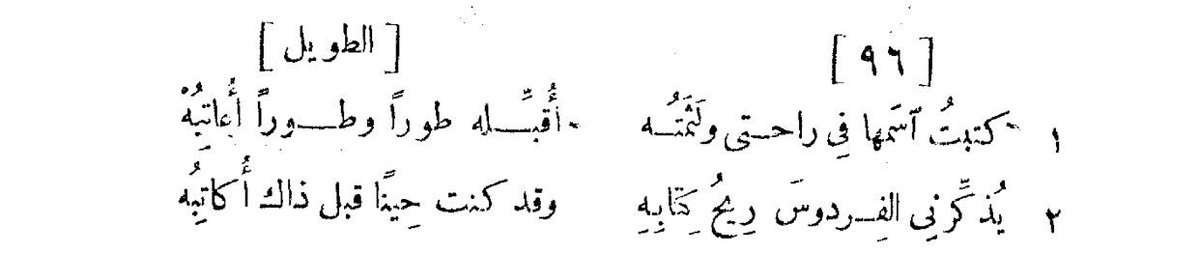 [ ٩٦ ] [ الطويل ]
١ كتبتُ ٱسَمها فِي راحتى ولَثَمتُه أُقبِّله طوراً وطوراً أُعاتِبُهْ
٢ يُذكِّرنِي الفِردوسَ رِيحُ كِتَابِهِ وقد كنت حِينًا قبل ذاك أُكاتِبُه